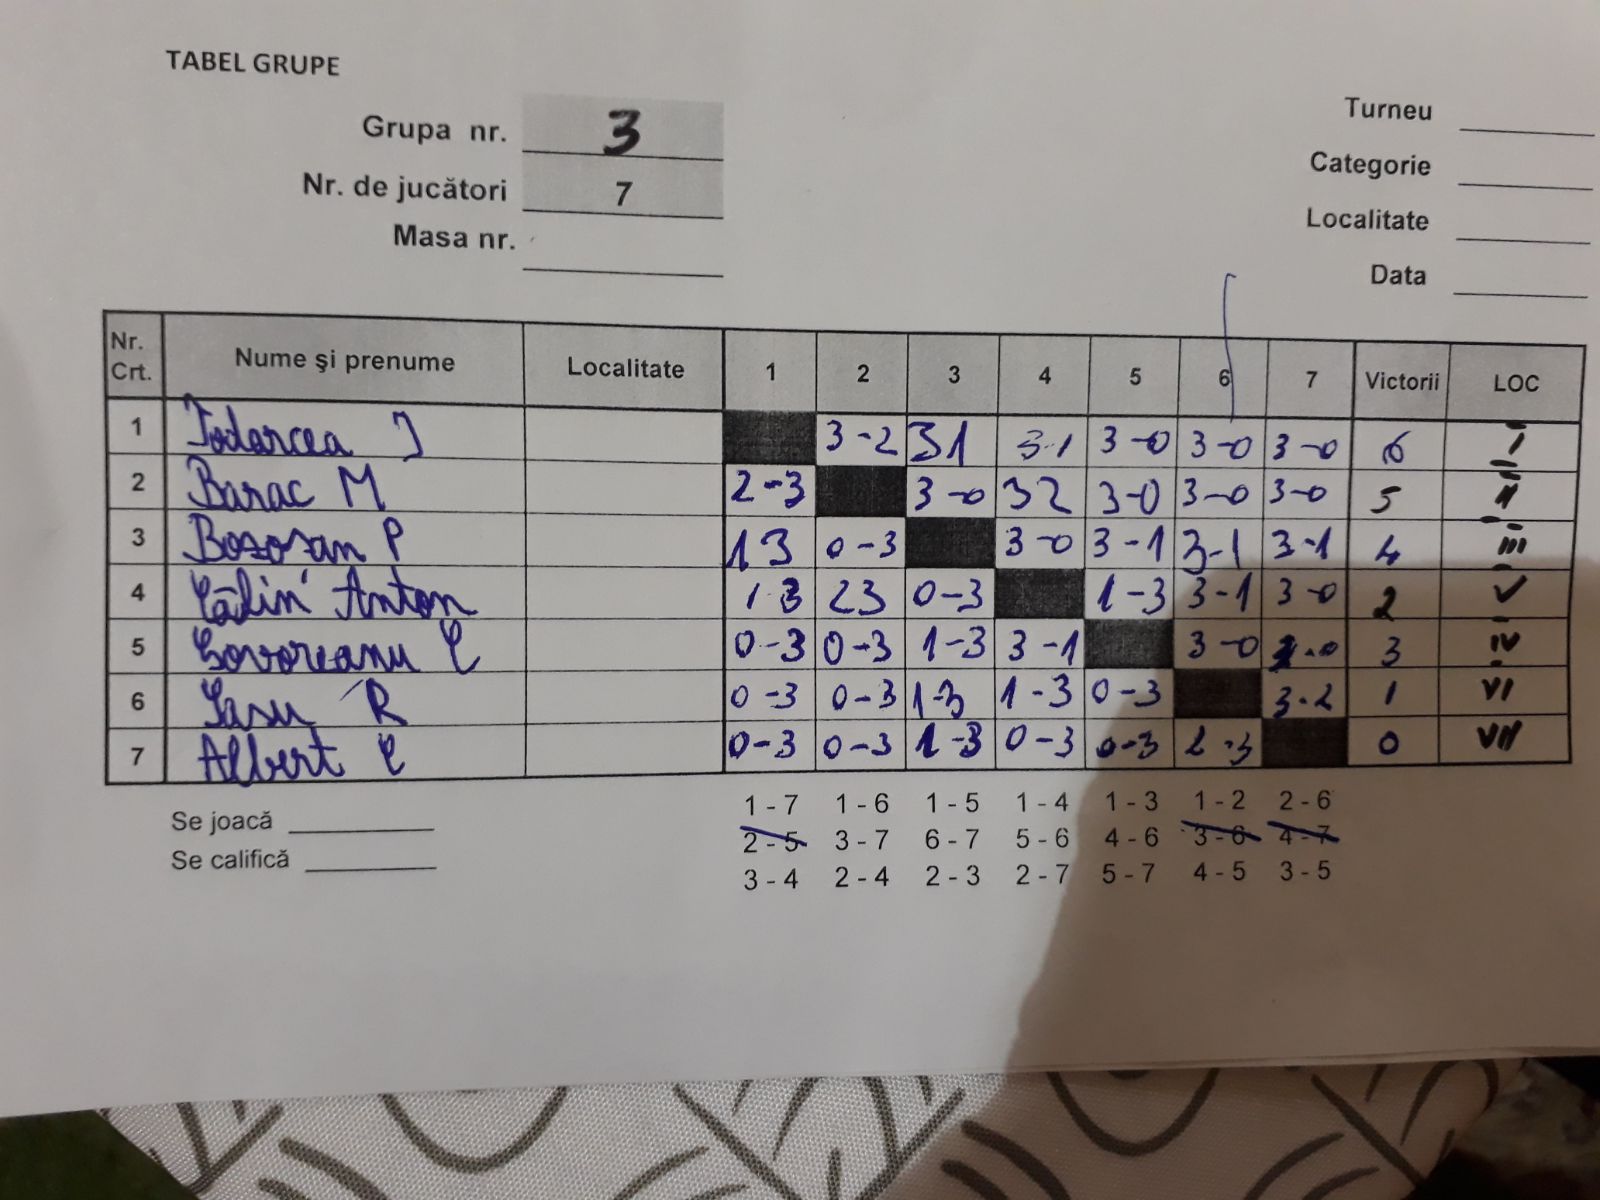 TABEL GRUPE
Grupa nr. 3
Nr. de jucători 7
Masa nr.
Turneu
Categorie
Localitate
Data
Nr. Crt. Nume și prenume Localitate 1 2 3 4 5 6 7 Victorii LOC
1 Todorcea I 3-2 31 3-1 3-0 3-0 3-0 6 I
2 Barac M 2-3 3-0 32 3-0 3-0 3-0 5 II
3 Bosoșan P 13 0-3 3-0 3-1 3-1 3-1 4 III
4 Călin Anton 13 23 0-3 1-3 3-1 3-0 2 V
5 Govoreanu C 0-3 0-3 1-3 3-1 3-0 3-0 3 IV
6 R 0-3 0-3 1-3 1-3 0-3 3-2 1 VI
7 Albert C 0-3 0-3 1-3 0-3 0-3 2-3 0 VII
Se joacă
Se califică
1 - 7 1 - 6 1 - 5 1 - 4 1 - 3 1 - 2 2 - 6
2 - 5 3 - 7 6 - 7 5 - 6 4 - 6 3 - 6 4 - 7
3 - 4 2 - 4 2 - 3 2 - 7 5 - 7 4 - 5 3 - 5